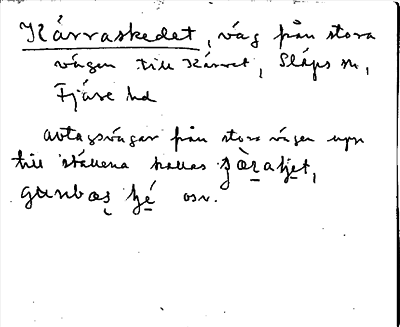 Kärraskedet, väg från stora
vägen till Kärret, Släps sn,
Fjäre hd
avtagsvägar från stora vägen upp
till ställena kallas
osv.